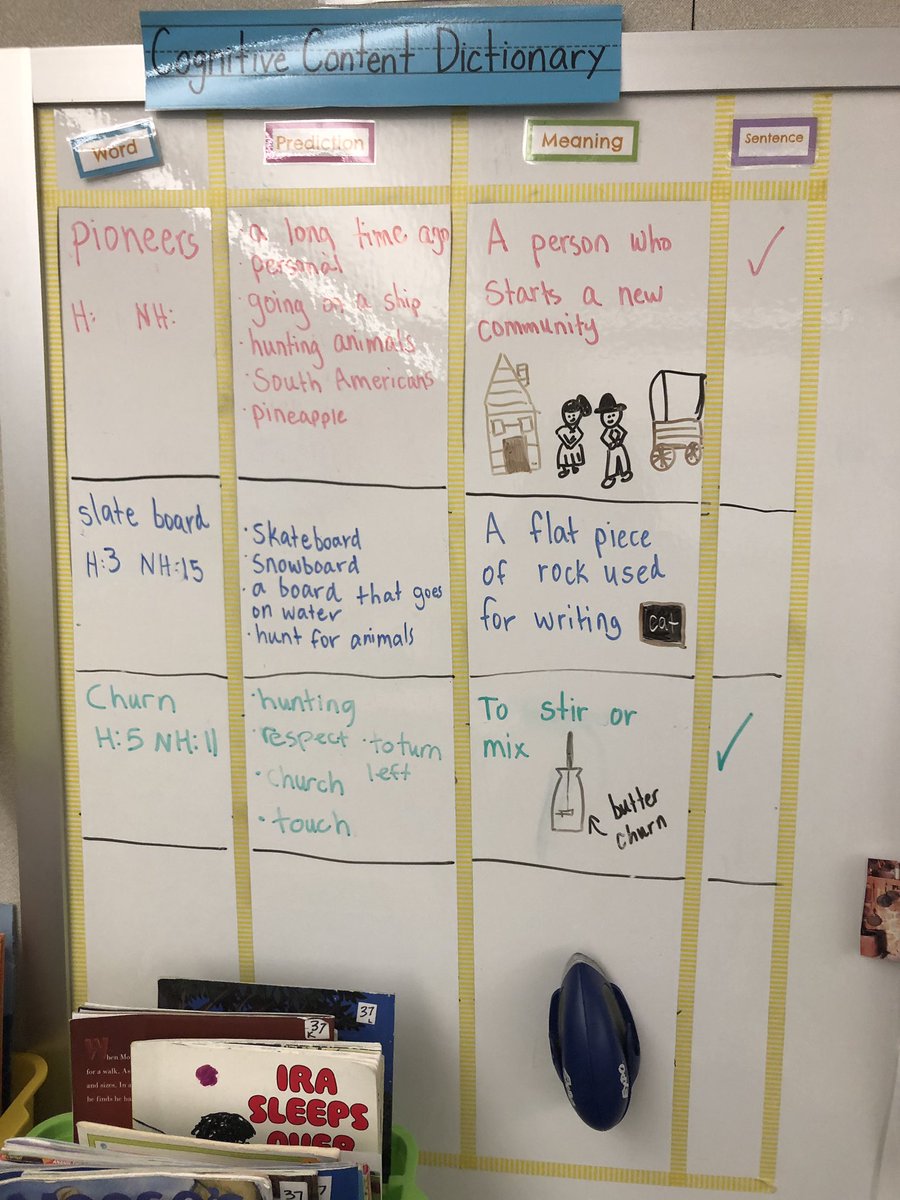 Cognitive Content Dictionary
Word
Prediction
Meaning
Sentence
pioneers
H: NH:
· a long time ago
· personal
· going on a ship
· hunting animals
· South Americans
· pineapple
A person who
starts a new
community
✓
slate board
H:3 NH:15
· skateboard
· snowboard
· a board that goes
on water
· hunt for animals
A flat piece
of rock used
for writing
cat
Churn
H:5 NH:11
· hunting
· respect · to turn
left
· church
· touch
To stir or
mix
butter
churn
✓
37
L
37
K
When Mo
for a walk, As
and sizes, In a
he finds he ha
IRA
SLEEPS
OVER
37
37